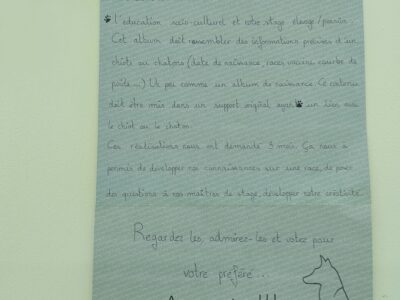 l'éducation socio-culturel et votre stage élevage/passion.
Cet album doit rassembler des informations précises d'un
chiots ou chatons (date de naissance, race, vaccins, courbe de
poids...) Un peu comme un album de naissance. Ce contenu
doit être mis dans un support original ayant un lien avec
le chiot ou le chaton.
Ces réalisations nous ont demandé 3 mois. Ça nous a
permis de développer nos connaissances sur une race, de poser
des questions à nos maîtres de stage, développer notre créativité.
Regardez les, admirez-les et votez pour
votre préféré...